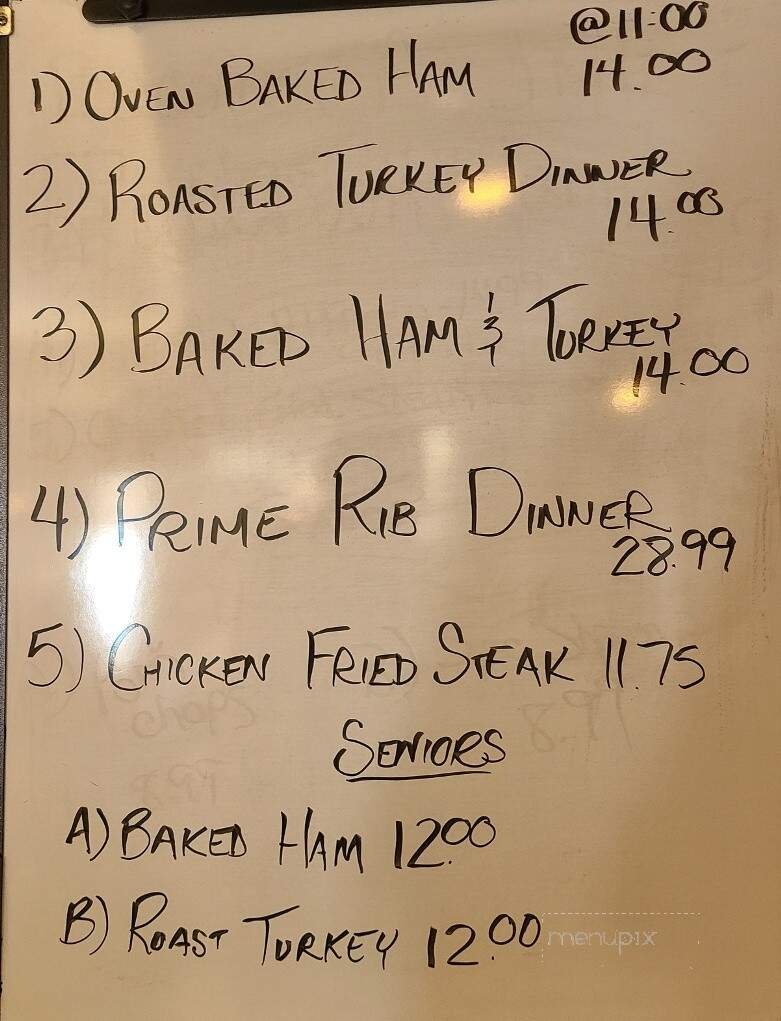 @11:00
1) OVEN BAKED HAM 14.00
2) ROASTED TURKEY DINNER
14.00
3) BAKED HAM & TURKEY
14.00
4) PRIME RIB DINNER
28.99
5) CHICKEN FRIED STEAK 11.75
SENIORS
A) BAKED HAM 12.00
B) ROAST TURKEY 12.00
menupix